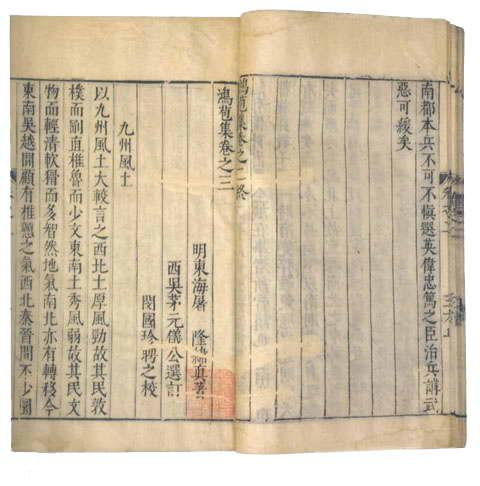 南都本兵不可不慎選英偉忠篤之臣治兵講武
惡可緩矣
鴻苞集卷之二終
鴻苞集卷之三
明東海屠 隆緯真著
西吳茅元儀公選訂
閔國珍聘之校
九州風土
以九州風土大較言之西北土厚風勁故其民敦
樸而剛直椎魯而少文東南土秀風弱故其民文
物而輕清軟猾而多智然地氣南北亦有轉移今
東南吳越閩廣有椎魯之氣西北秦晉間不少